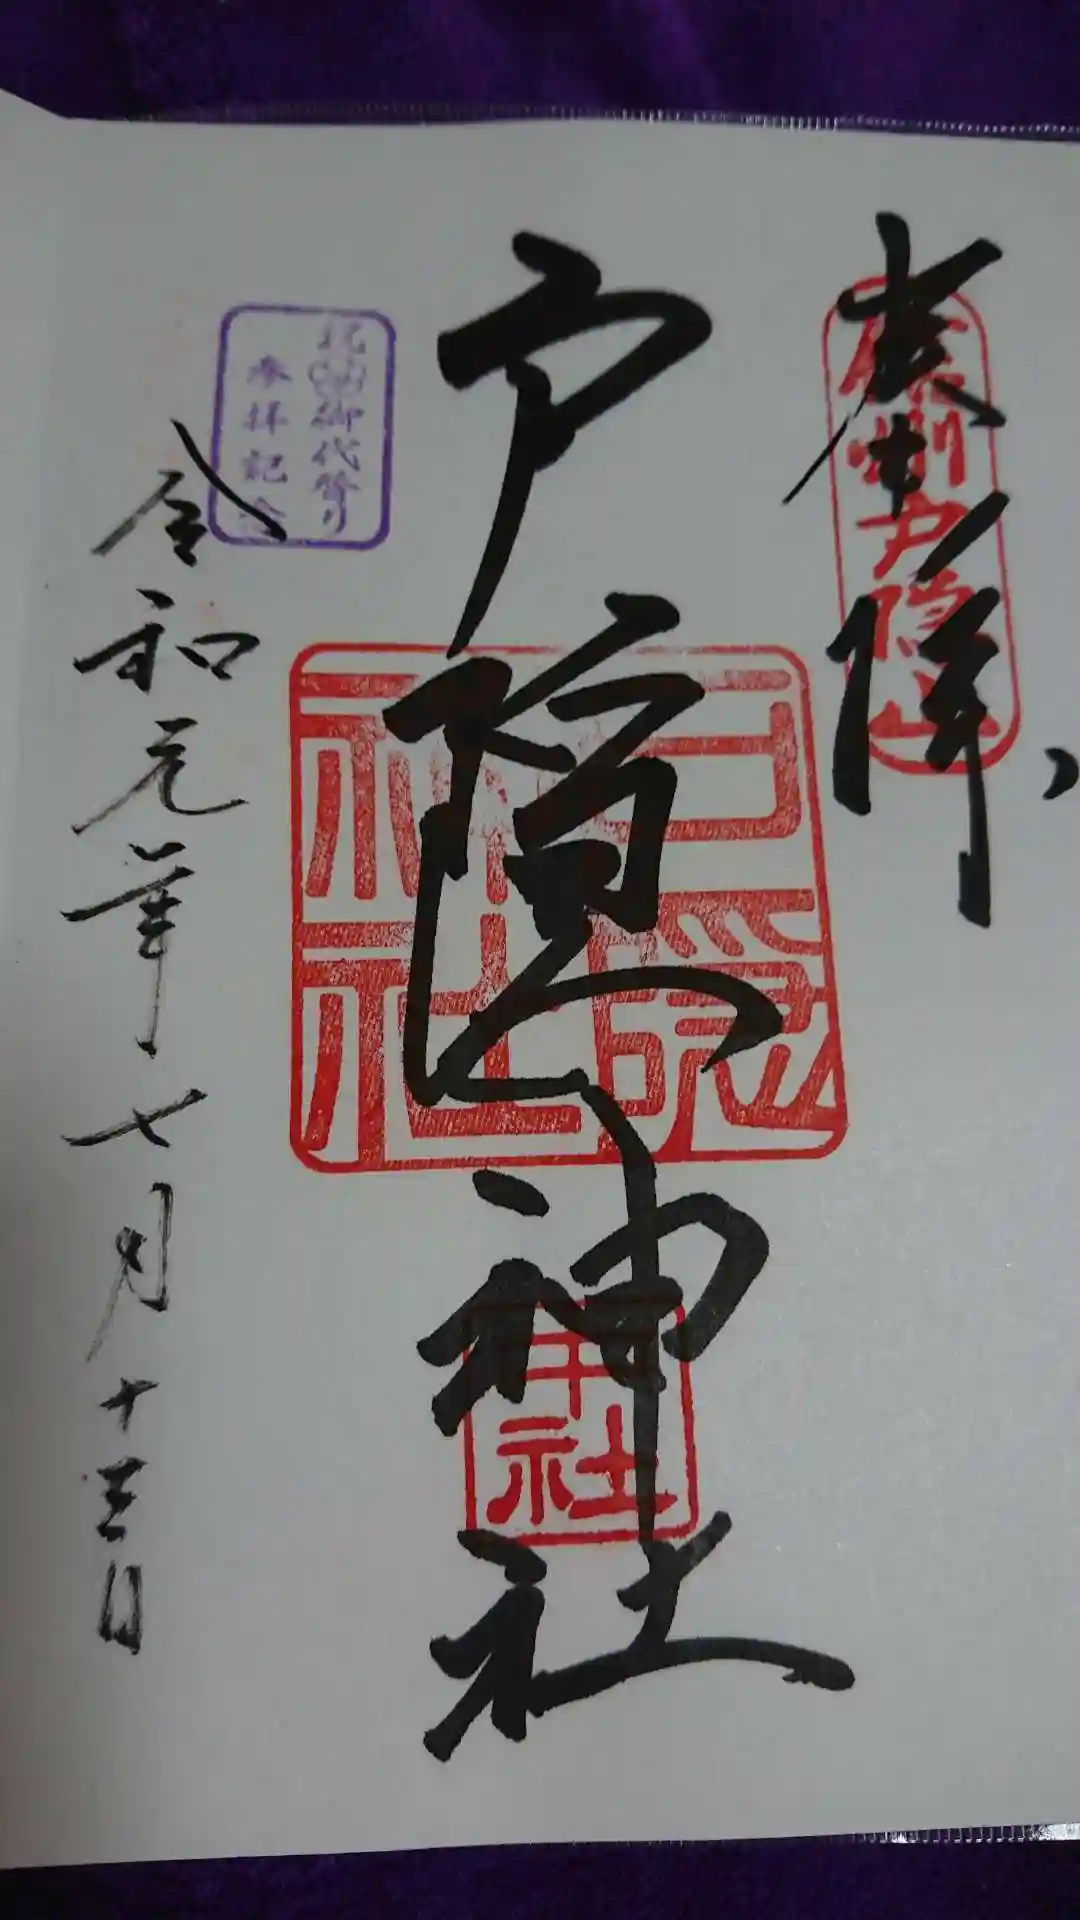 奉拝
信州戸隠山
戸隠神社
戸隠
神社
中社
祝御代替り
参拝記念
令和元年七月十三日